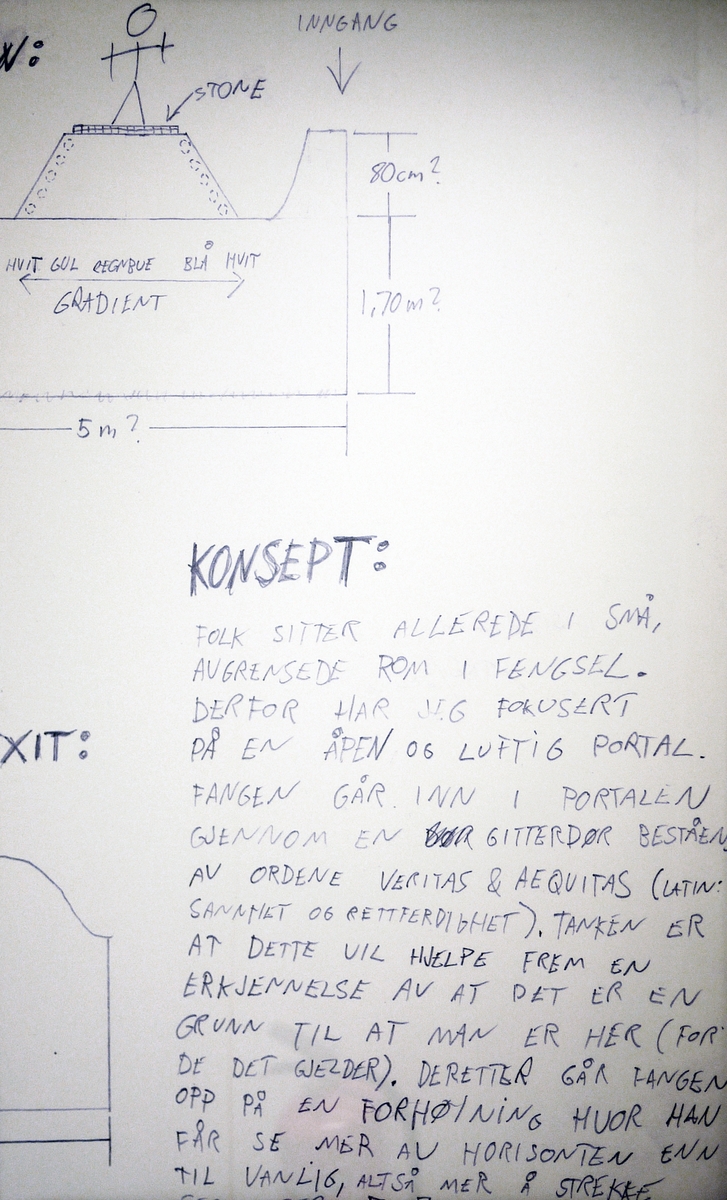 N:
INNGANG
STONE
80cm?
HVIT GUL REGNBUE BLÅ HVIT
GRADIENT
1,70m?
5m?
KONSEPT:
FOLK SITTER ALLEREDE I SMÅ,
AVGRENSEDE ROM I FENGSEL.
DERFOR HAR JEG FOKUSERT
PÅ EN ÅPEN OG LUFTIG PORTAL.
XIT:
FANGEN GÅR INN I PORTALEN
GJENNOM EN GITTERDØR BESTÅEN
AV ORDENE VERITAS & AEQUITAS (LATIN:
SANNHET OG RETTFERDIGHET). TANKEN ER
AT DETTE VIL HJELPE FREM EN
ERKJENNELSE AV AT DET ER EN
GRUNN TIL AT MAN ER HER (FOR
DE DET GJELDER). DERETTER GÅR FANGEN
OPP PÅ EN FORHØYNING HVOR HAN
FÅR SE MER AV HORISONTEN ENN
TIL VANLIG, ALTSÅ MER Å STREKKE